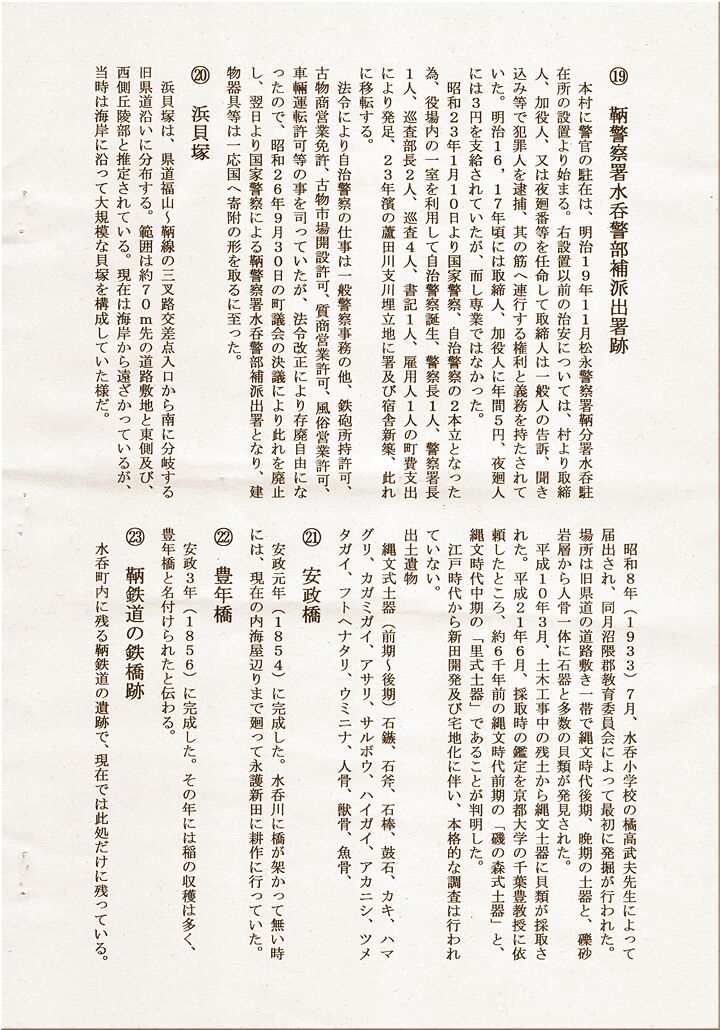 ⑲　鞆警察署水呑警部補派出署跡
本村に警官の駐在は、明治19年11月松永警察署鞆分署水呑駐
在所の設置より始まる。右設置以前の治安については、村より取締
人、加役人、又は夜廻番等を任命して取締人は一般人の告訴、聞き
込み等で犯罪人を逮捕、其の筋へ連行する権利と義務を持たされて
いた。明治16，17年頃には取締人、加役人に年間5円、夜廻人
には3円を支給されていたが、而し専業ではなかった。
昭和23年1月10日より国家警察、自治警察の2本立となった
為、役場内の一室を利用して自治警察誕生、警察長1人、警察署長
1人、巡査部長2人、巡査4人、書記1人、雇用人1人の町費支出
により発足、23年濱の蘆田川支川埋立地に署及び宿舎新築、此れ
に移転する。
法令により自治警察の仕事は一般警察事務の他、鉄砲所持許可、
古物商営業免許、古物市場開設許可、質商営業許可、風俗営業許可、
車輛運転許可等の事を司っていたが、法令改正により存廃自由にな
ったので、昭和26年9月30日の町議会の決議により此れを廃止
し、翌日より国家警察による鞆警察署水呑警部補派出署となり、建
物器具等は一応国へ寄附の形を取るに至った。
⑳　浜貝塚
浜貝塚は、県道福山～鞆線の三叉路交差点入口から南に分岐する
旧県道沿いに分布する。範囲は約70m先の道路敷地と東側及び、
西側丘陵部と推定されている。現在は海岸から遠ざかっているが、
当時は海岸に沿って大規模な貝塚を構成していた様だ。
昭和8年（1933）7月、水呑小学校の橘高武夫先生によって
届出され、同月沼隈郡教育委員会によって最初に発掘が行われた。
場所は旧県道の道路敷き一帯で縄文時代後期、晩期の土器と、礫砂
岩層から人骨一体に石器と多数の貝類が発見された。
平成10年3月、土木工事中の残土から縄文土器に貝類が採取さ
れた。平成21年6月、採取時の鑑定を京都大学の千葉豊教授に依
頼したところ、約6千年前の縄文時代前期の「磯の森式土器」と、
縄文時代中期の「里式土器」であることが判明した。
江戸時代から新田開発及び宅地化に伴い、本格的な調査は行われ
ていない。
出土遺物
縄文式土器（前期～後期）石鏃、石斧、石棒、鼓石、カキ、ハマ
グリ、カガミガイ、アサリ、サルボウ、ハイガイ、アカニシ、ツメ
タガイ、フトヘナタリ、ウミニナ、人骨、獣骨、魚骨、
㉑　安政橋
安政元年（1854）に完成した。水呑川に橋が架かって無い時
には、現在の内海屋辺りまで廻って永護新田に耕作に行っていた。
㉒　豊年橋
安政3年（1856）に完成した。その年には稲の収穫は多く、
豊年橋と名付けられたと伝わる。
㉓　鞆鉄道の鉄橋跡
水呑町内に残る鞆鉄道の遺跡で、現在では此処だけに残っている。